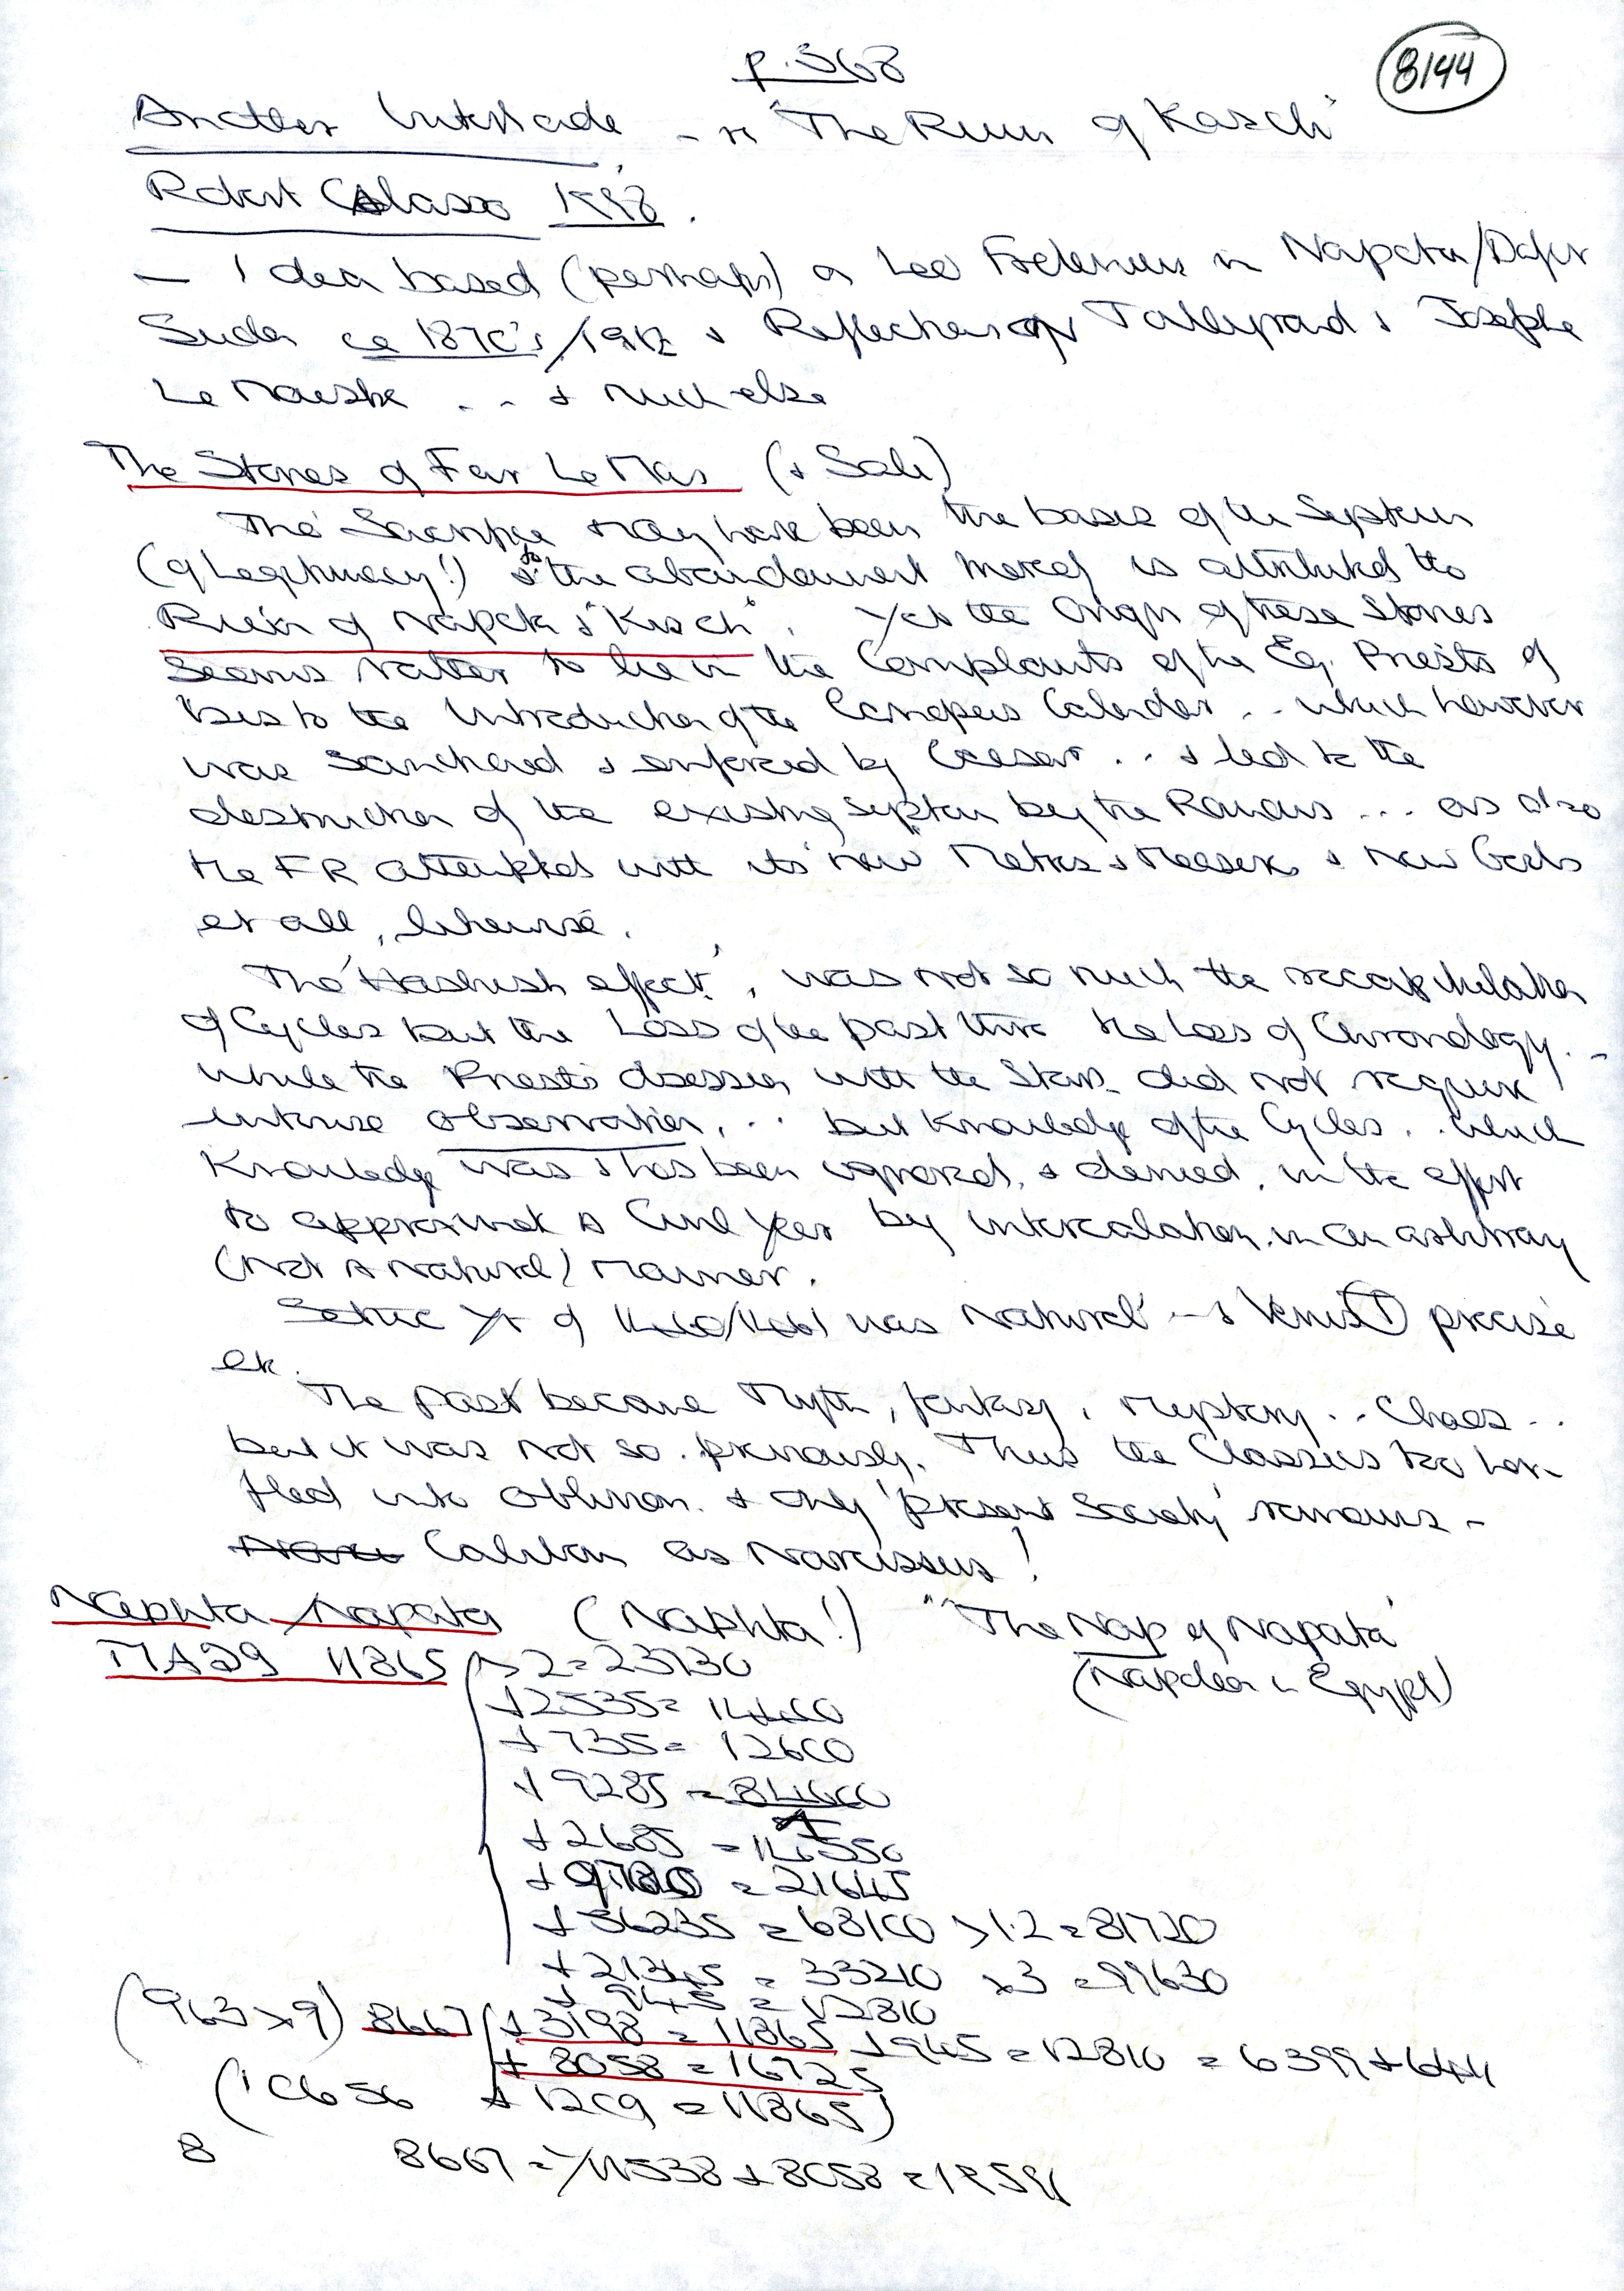 p. 368
8144
Another Interlude - in "The Ruin of Kasch"
Robert Calasso 1998.
— Idea based (perhaps) on Leo Frobenius in Napata/Dafur
Sudan ca 1870's/1912 & Reflections on Talleyrand & Joseph
Le Maistre .. & Much else
The Stories of Far Le Mas (& Sali)
The Sacrifice may have been the basis of the System
(of Legitimacy!) & to the abandonment thereof is attributed the
Ruin of Napata & "Kasch". Yet the Origin of these Stories
Seems rather to lie in the Complaints of the Eg. Priests of
Isis to the Introduction of the Canopus Calendar .. which however
was Sanctioned & enforced by Caesar .. & led to the
destruction of the existing system by the Romans ... as also
the FR attempted with its 'new' Metrics & Measures & New Gods
et all, likewise.
The 'Hashish effect', was not so much the recapitulation
of Cycles but the Loss of the past thro the Loss of Chronology. -
while the Priests obsession with the Stars did not require
intense observation, .. but Knowledge of the Cycles .. which
Knowledge was & has been ignored, & denied, in the effort
to approximate a Civil Year by intercalation, in an arbitrary
(Not a Natural) manner.
Sothic Yr of 1460/1461 was 'Natural' - & Venus precise
etc.
The past became Myth, fantasy, Mystery .. Chaos ..
but it was not so previously. Thus the Classics too have
fled into oblivion & only 'present Society' remains -
Caliban as Narcissus!
Naphta Napata (Naphta!) "The Nap of Napata"
(Napoleon in Egypt)
MA29 11865 x 2 = 23730
+ 2535 = 14400
+ 735 = 12600
+ 9285 =
+ 2685 = 14550
+ 9780 = 21645
+ 56235 = 68100 x 1.2 = 81720
+ 21345 = 33210 x 3 = 99630
+ 945 = 12810
(963 x 9) 8667 + 3198 = 11865 + 945 = 12810 = 6399 + 6411
+ 8058 = 16725
(10656 + 1209 = 11865)
8 8667 = 11538 + 8058 = 19596